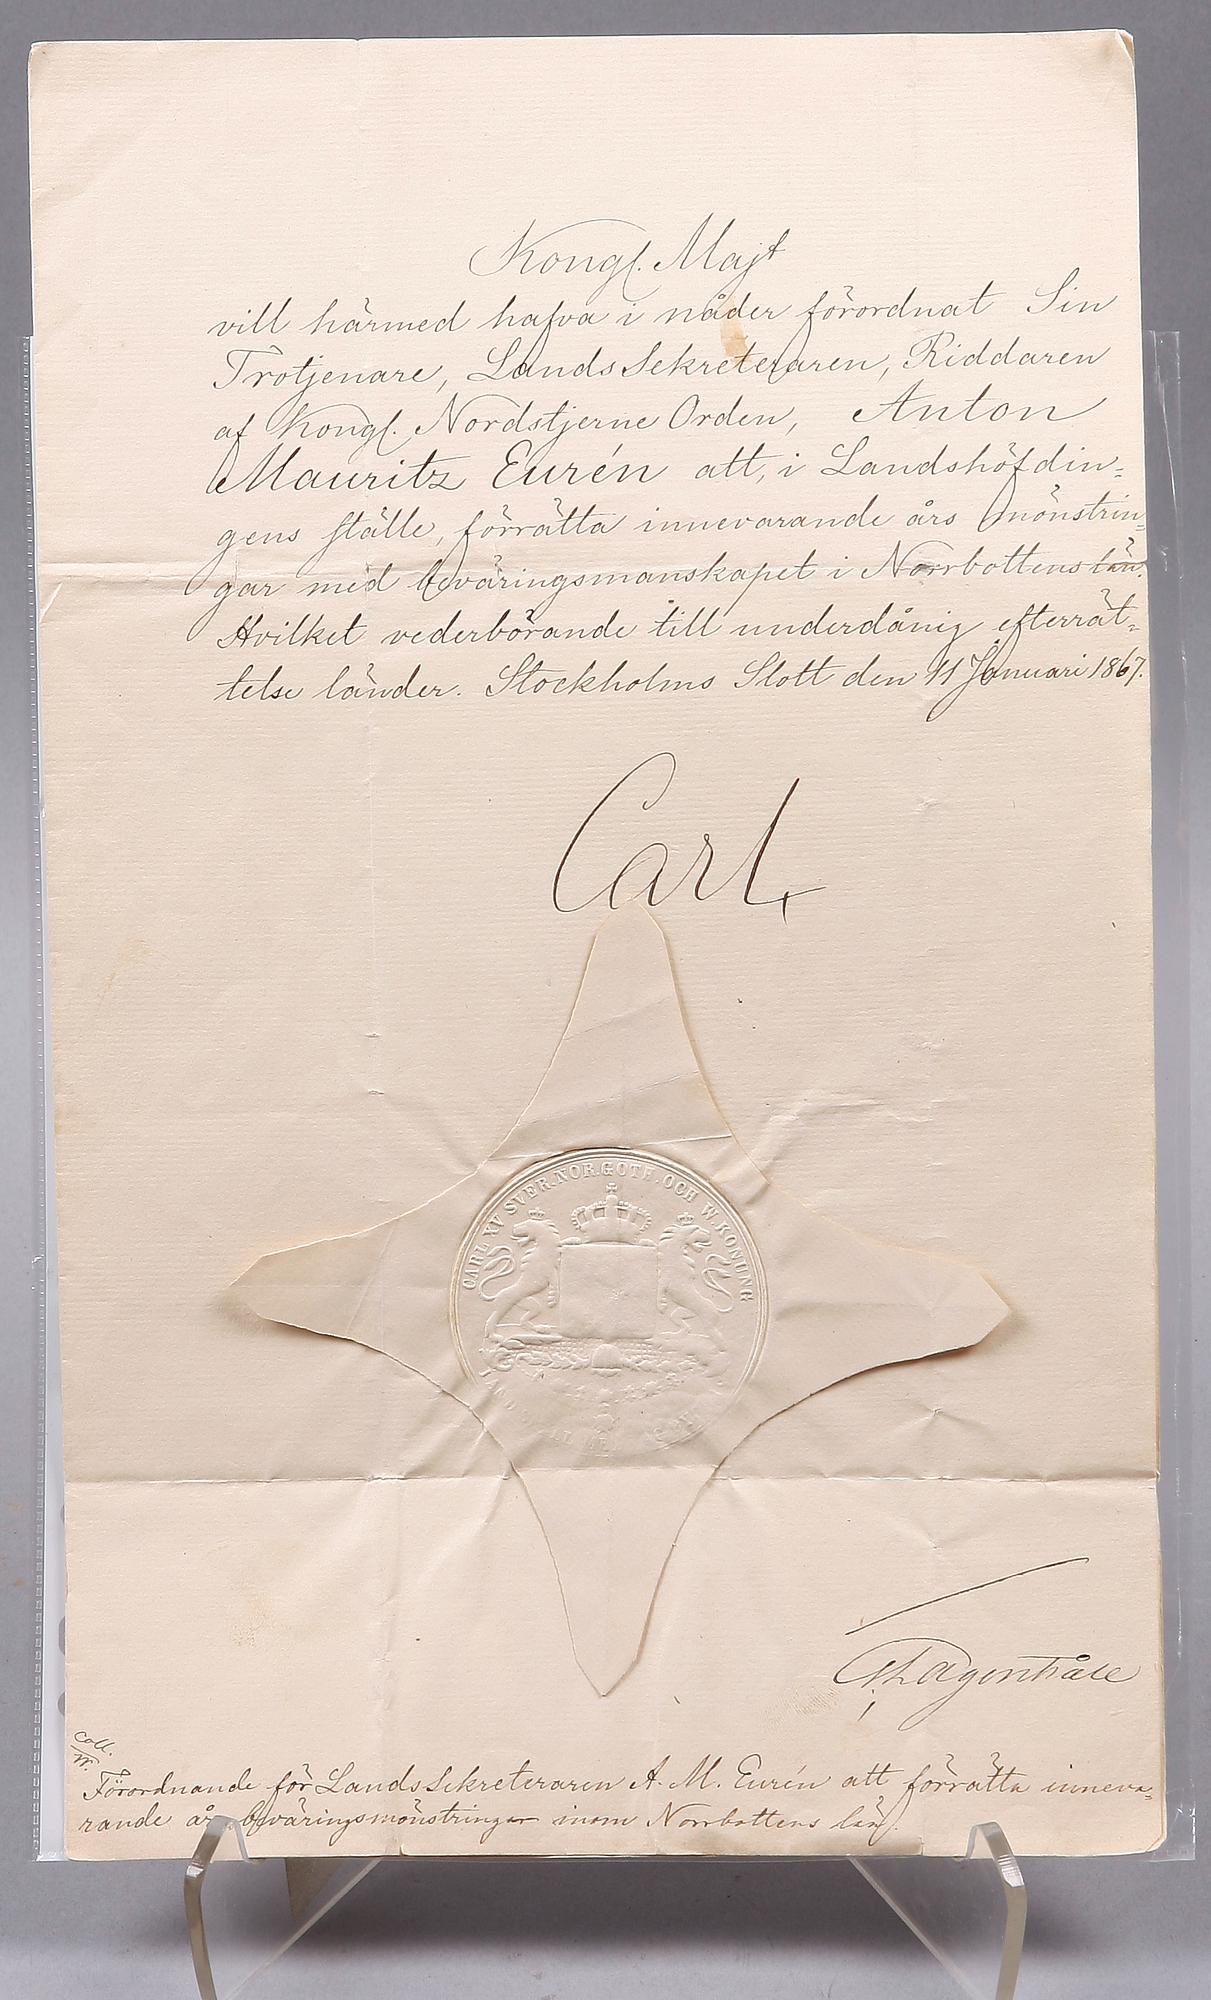 Kongl. Majt
vill härmed hafva i nåder förordnat Sin
Trotjenare, LandsSekreteraren, Riddaren
af Kongl. Nordstjerne Orden, Anton
Mauritz Eurén att, i Landshöfdin-
gens ställe, förrätta innevarande års mönstrin-
gar med beväringsmanskapet i Norrbottens län.
Hvilket vederbörande till underdånig efterrät-
telse länder. Stockholms Slott den 11 Januari 1867.
Carl
CARL XV SVER. NOR. GOTH. OCH W. KONUNG
Lagercråle
Coll.
Förordnande för LandsSekreteraren A. M. Eurén att förrätta inneva-
rande års beväringsmönstringar inom Norrbottens län.